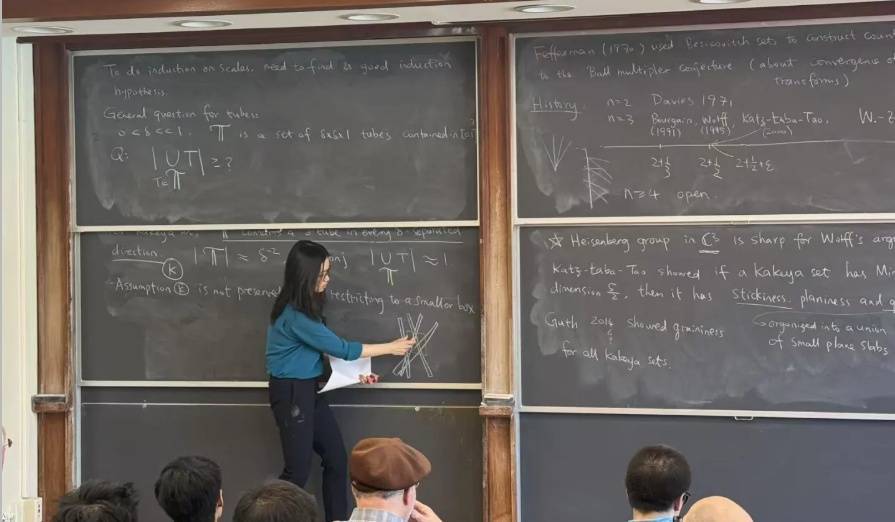 To do induction on scales, need to find a good induction
hypothesis.
General question for tubes:
0 < δ << 1. 𝕋 is a set of δxδx1 tubes contained in
Q: |∪T| ≥ ?
T∈𝕋
𝕋 contains a δ tube in every δ-separated
direction. |𝕋| ≈ δ⁻² |∪T| ≈ 1
𝕋
Ⓚ
- Assumption Ⓚ is not restricting to a smaller box
Fefferman (1970) used Besicovitch sets to construct
to the Ball multiplier conjecture (about convergence of
transforms)
History. n=2 Davies 1971
n=3 Bourgain, Wolff, Katz-Łaba-Tao, W.-
(1991) (1995) (2000)
2+1/3 2+1/2 2+1/2+ε
n≥4 open.
☆ Heisenberg group in ℂ³ is sharp for Wolff's
Katz-Łaba-Tao showed if a Kakeya set has
dimension 5/2, then it has stickiness, planiness and
Guth 2014 showed graininess → organized into a union
of small plane slabs
for all Kakeya sets.